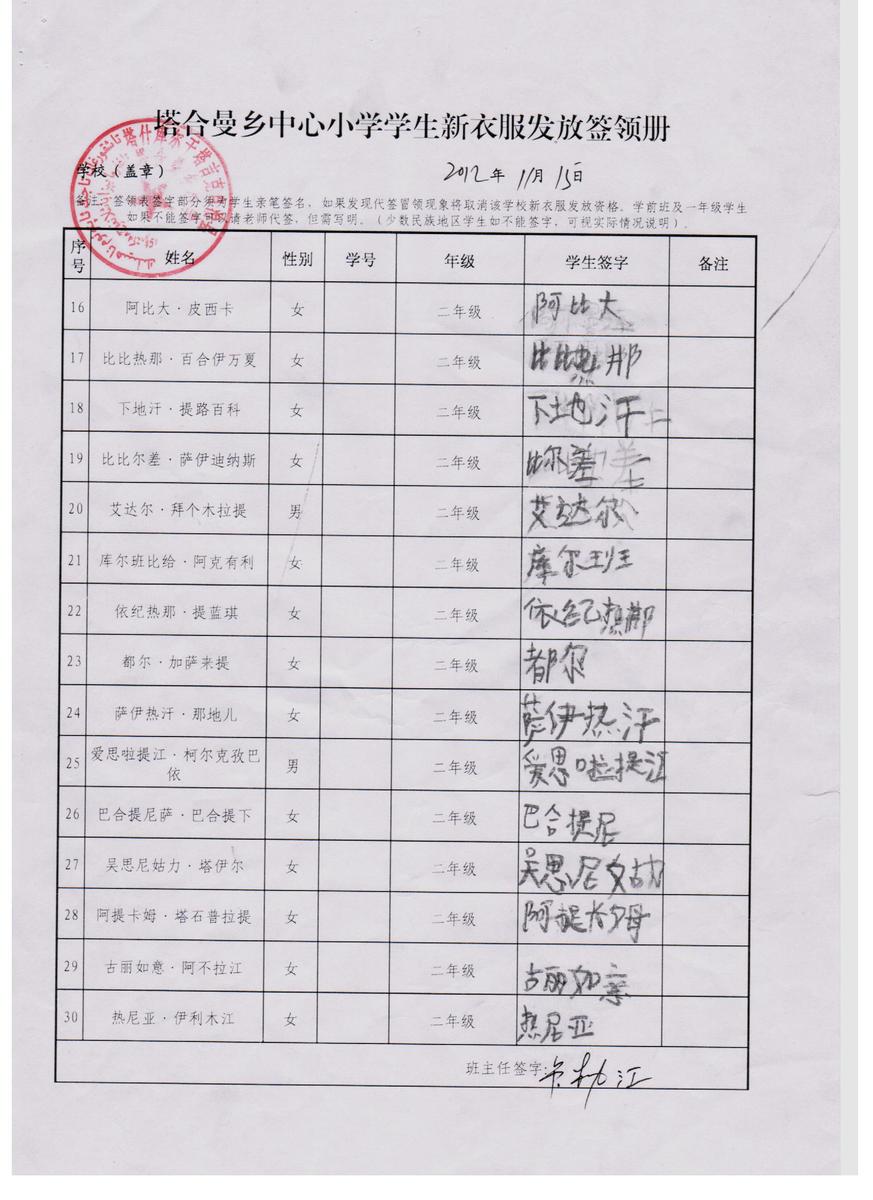 塔合曼乡中心小学学生新衣服发放签领册
学校（盖章） 2012年 11月 15日
备注：签领表签字部分须有学生亲笔签名，如果发现代签冒领现象将取消该学校新衣服发放资格。学前班及一年级学生
如果不能签字可以请老师代签，但需写明。（少数民族地区学生如不能签字，可视实际情况说明）。
序号 姓名 性别 学号 年级 学生签字 备注
16 阿比大·皮西卡 女 二年级 阿比大
17 比比热那·百合伊万夏 女 二年级 比比热那
18 下地汗·提路百科 女 二年级 下地汗
19 比比尔差·萨伊迪纳斯 女 二年级 比尔差
20 艾达尔·拜个木拉提 男 二年级 艾达尔
21 库尔班比给·阿克有利 女 二年级 库尔班
22 依纪热那·提蓝琪 女 二年级 依纪热那
23 都尔·加萨来提 女 二年级 都尔
24 萨伊热汗·那地儿 女 二年级 萨伊热汗
25 爱思啦提江·柯尔克孜巴依 男 二年级 爱思啦提江
26 巴合提尼萨·巴合提下 女 二年级 巴合提尼
27 吴思尼姑力·塔伊尔 女 二年级 吴思尼姑力
28 阿提卡姆·塔石普拉提 女 二年级 阿提卡姆
29 古丽如意·阿不拉江 女 二年级 古丽如意
30 热尼亚·伊利木江 女 二年级 热尼亚
班主任签字: